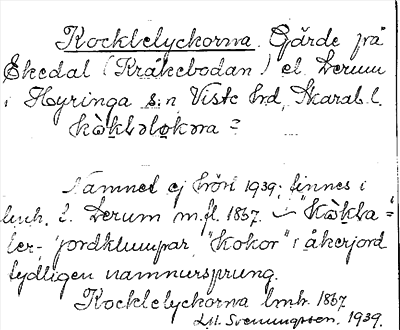 Kocklelyckorna. Gärde på
Ekedal (Kråkebodan) el. Lerum
i Hyringa s:n Viste hrd, Skarab.l.
Namnet ej hört 1939; finnes i
lmh. L. Lerum m.fl. 1867. "Kåkla"
ler- jordklumpar, "Kokor" i åkerjord
tydligen namnursprung.
Kocklelyckorna lmh. 1867
Svenungsson. 1939.